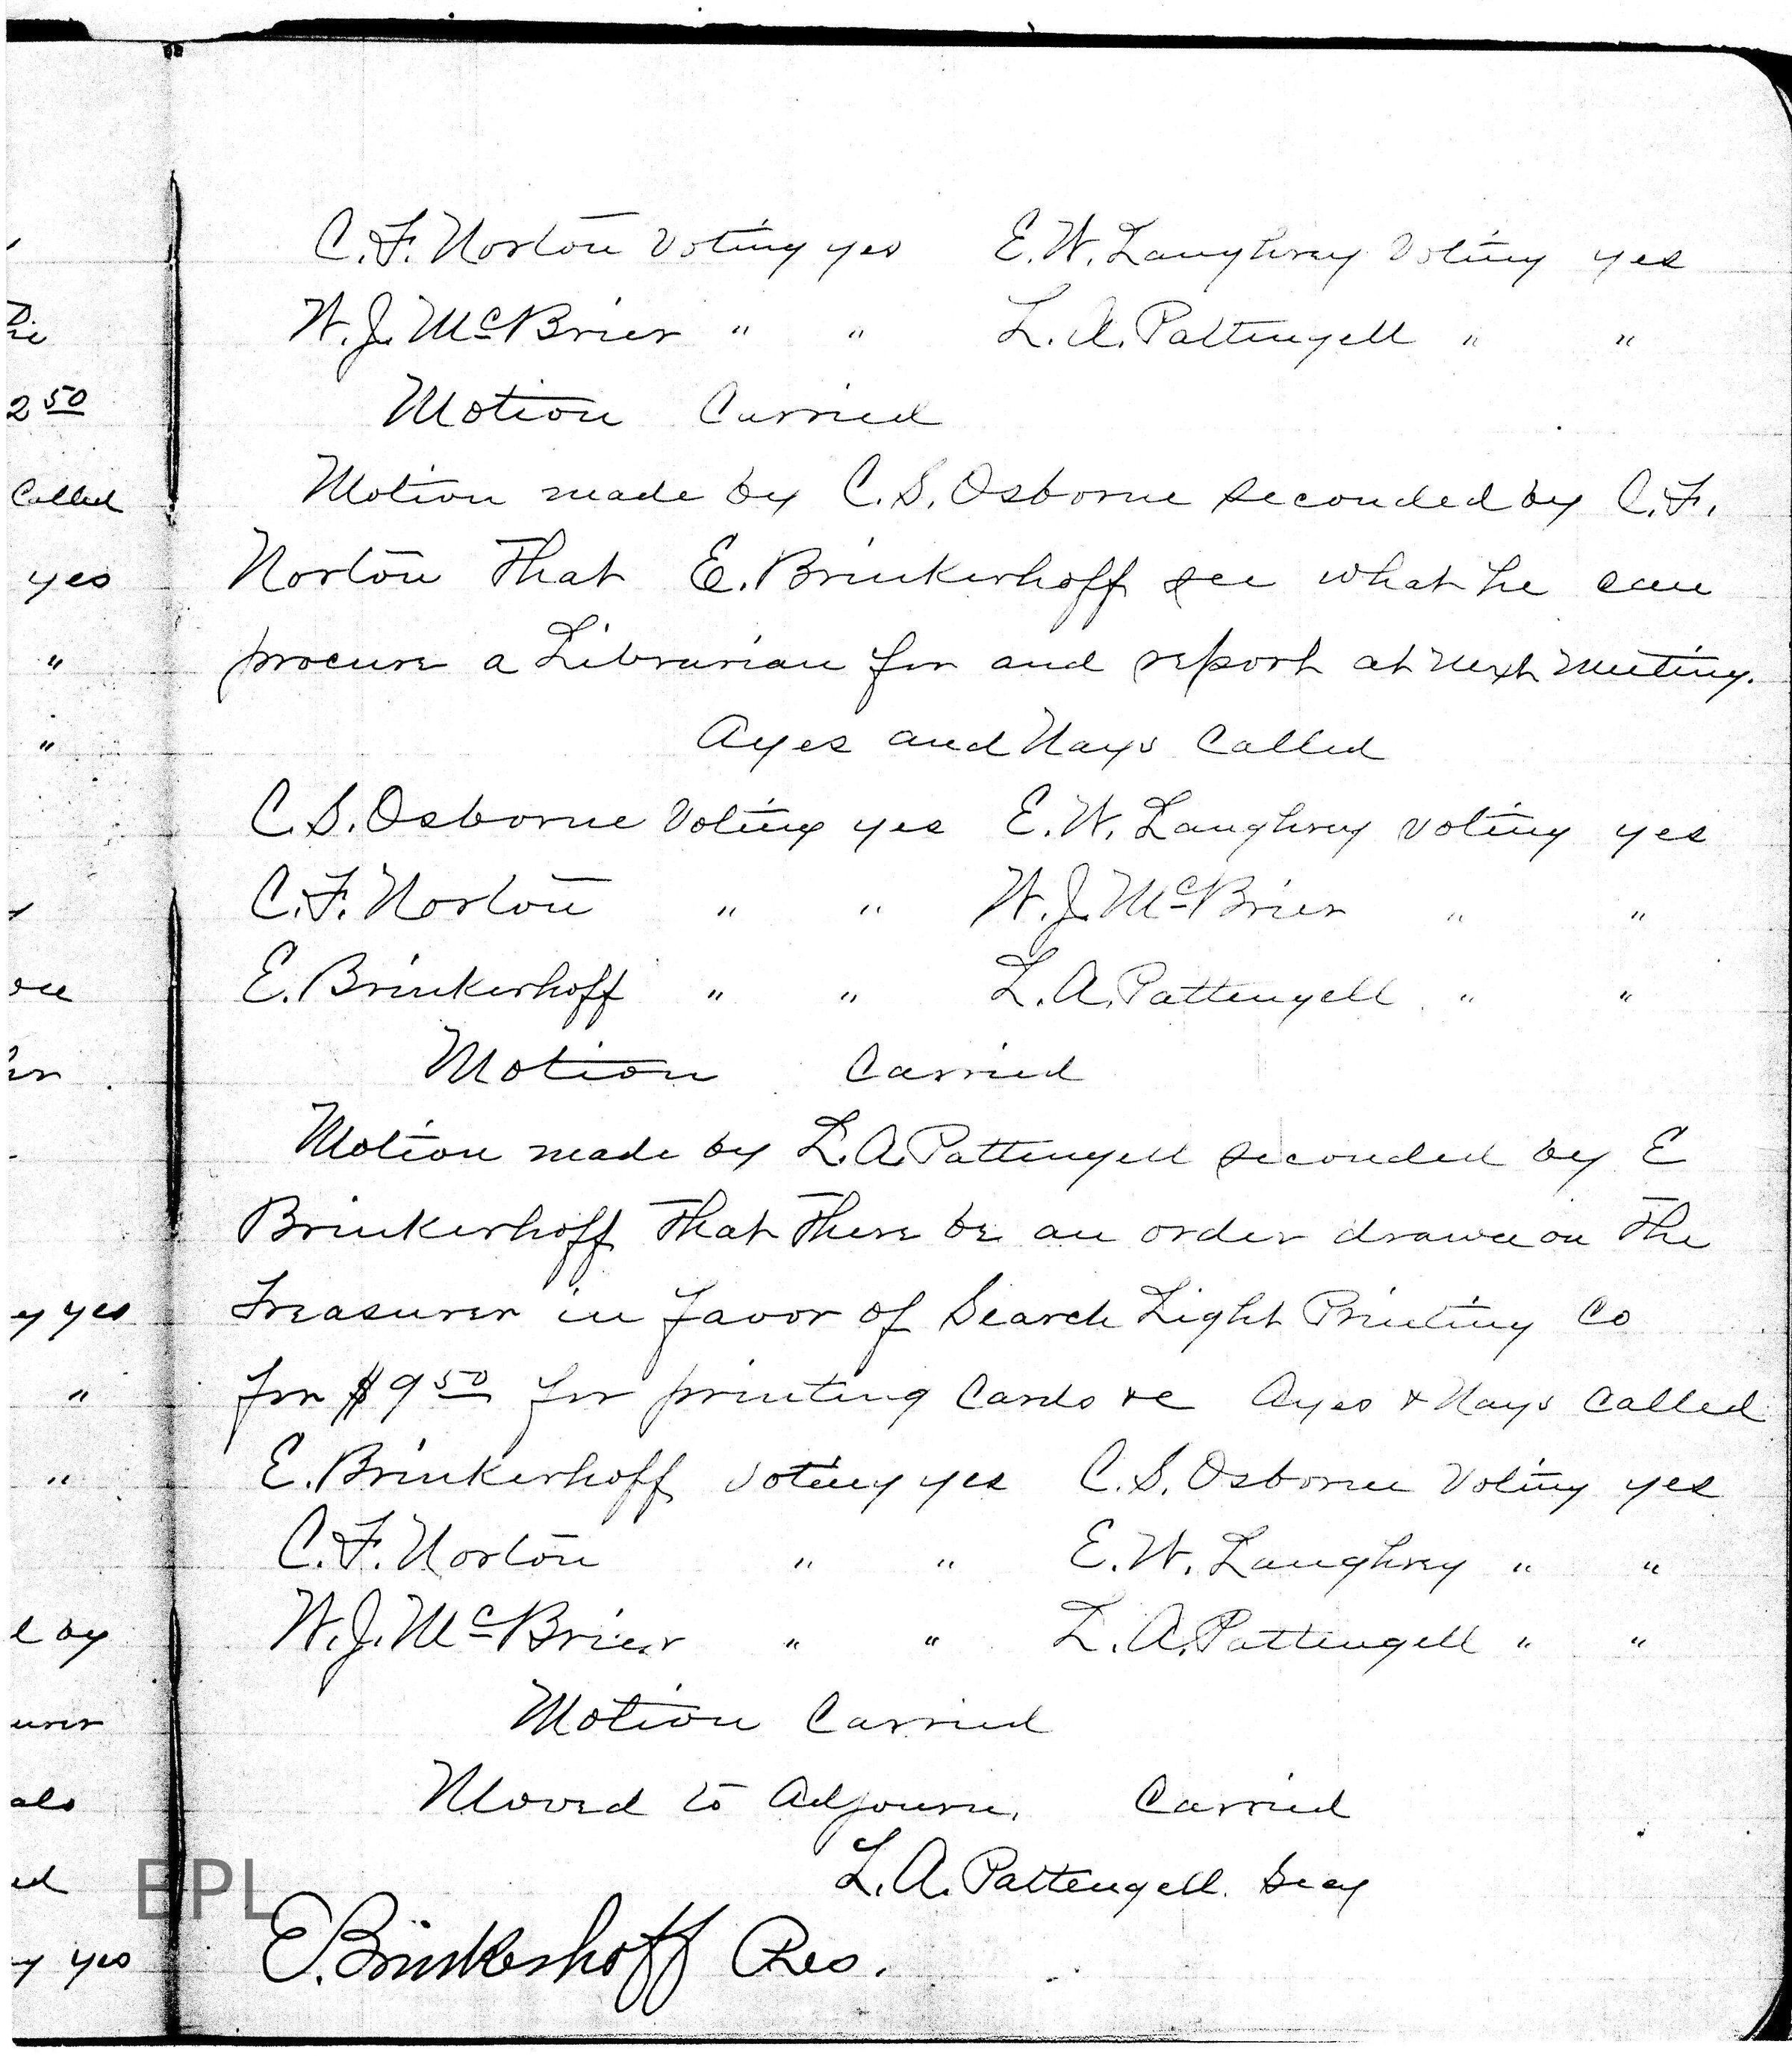 C. F. Norton Voting yes E. W. Laughrey Voting yes
W. J. McBrier " " L. A. Pattengell " "
Motion Carried
Motion made by C. S. Osborne seconded by C. F.
Norton That E. Brinkerhoff see what he can
procure a Librarian for and report at next meeting.
Ayes and Nays Called
C. S. Osborne Voting yes E. W. Laughrey voting yes
C. F. Norton " " W. J. McBrier " "
E. Brinkerhoff " " L. A. Pattengell " "
Motion Carried
Motion made by L. A. Pattengell seconded by E
Brinkerhoff That There be an order drawn on The
Treasurer in favor of Search Light Printing Co
for $9 50 for printing Cards &c Ayes & Nays Called
E. Brinkerhoff voting yes C. S. Osborne Voting yes
C. F. Norton " " E. W. Laughrey " "
W. J. McBrier " " L. A. Pattengell " "
Motion Carried
Moved to Adjourn. Carried
L. A. Pattengell. Secy
E. Brinkerhoff Pres.
2 50
Called
yes
"
"
y yes
"
"
by
y yes
EPL